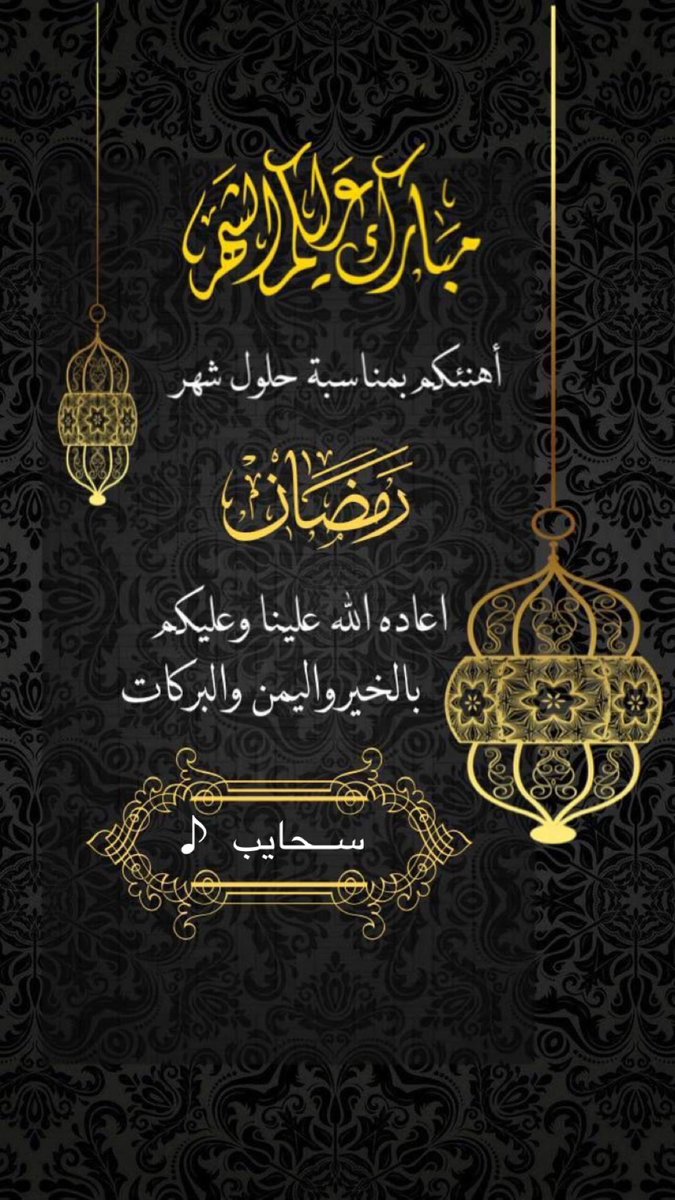 مبارك عليكم الشهر
أهنئكم بمناسبة حلول شهر
رمضان
اعاده الله علينا وعليكم
بالخير واليمن والبركات
سحايب ♪